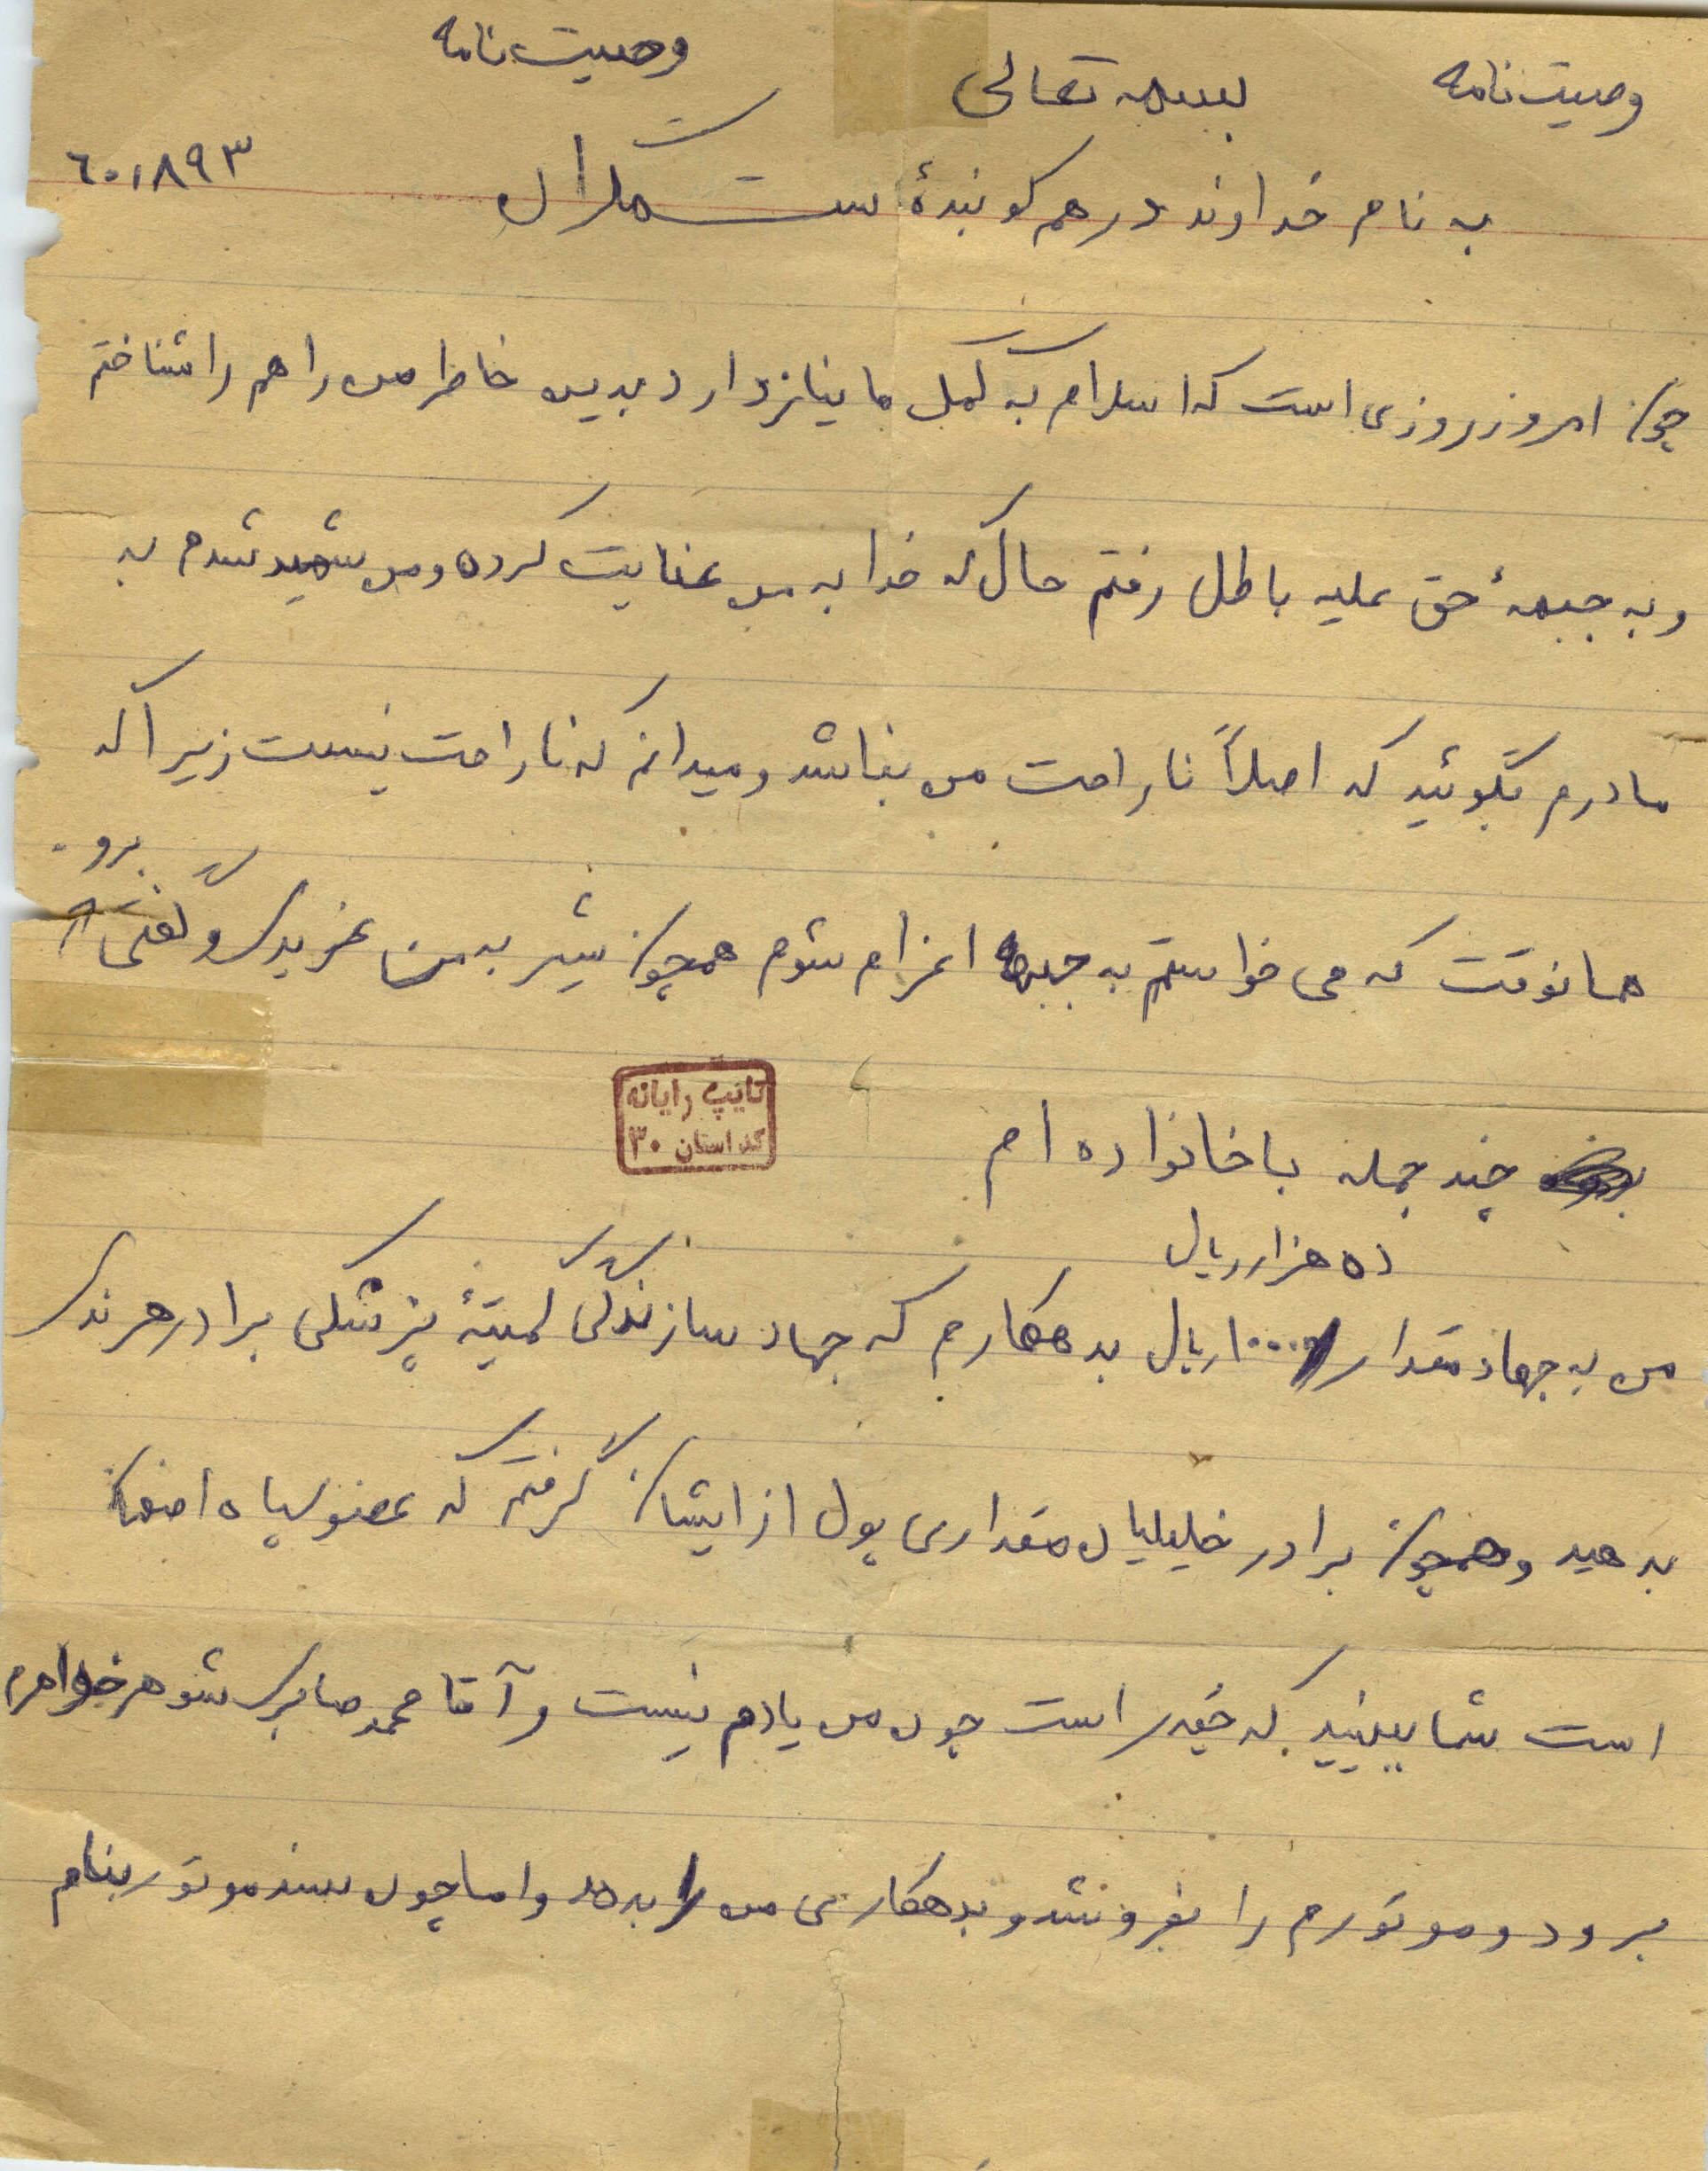 وصیت‌نامه
بسمه تعالی
وصیت‌نامه
٦٠١٨٩٣
به نام خداوند درهم کوبندهٔ ستمگران
چون امروز روزی است که اسلام به کمک ما نیاز دارد بدین خاطر من راهم را شناختم
و به جبههٔ حق علیه باطل رفتم حال که خدا به من عنایت کرده و من شهید شدم به
مادرم بگوئید که اصلاً ناراحت من نباشد و میدانم که ناراحت نیست زیرا که
همانوقت که می خواستم به جبهه اعزام شوم همچون شیر به من غرید و گفتی که برو
چند جمله با خانواده ام
تایپ رایانه
کد استان ۳۰
ده هزار ریال
من به جهاد مقدار ۱۰۰۰۰ ریال بدهکارم که جهاد سازندگی کمیتهٔ پزشکی برادر هرندی
بدهید و همچون برادر خلیلیان مقداری پول از ایشان گرفتم که عضو سپاه اصفهان
است شما ببینید که چقدر است چون من یادم نیست و آقا محمد صابری شوهر خواهرم
برود و موتورم را بفروشد و بدهکاری من را بدهد و اما چون سند موتور بنام